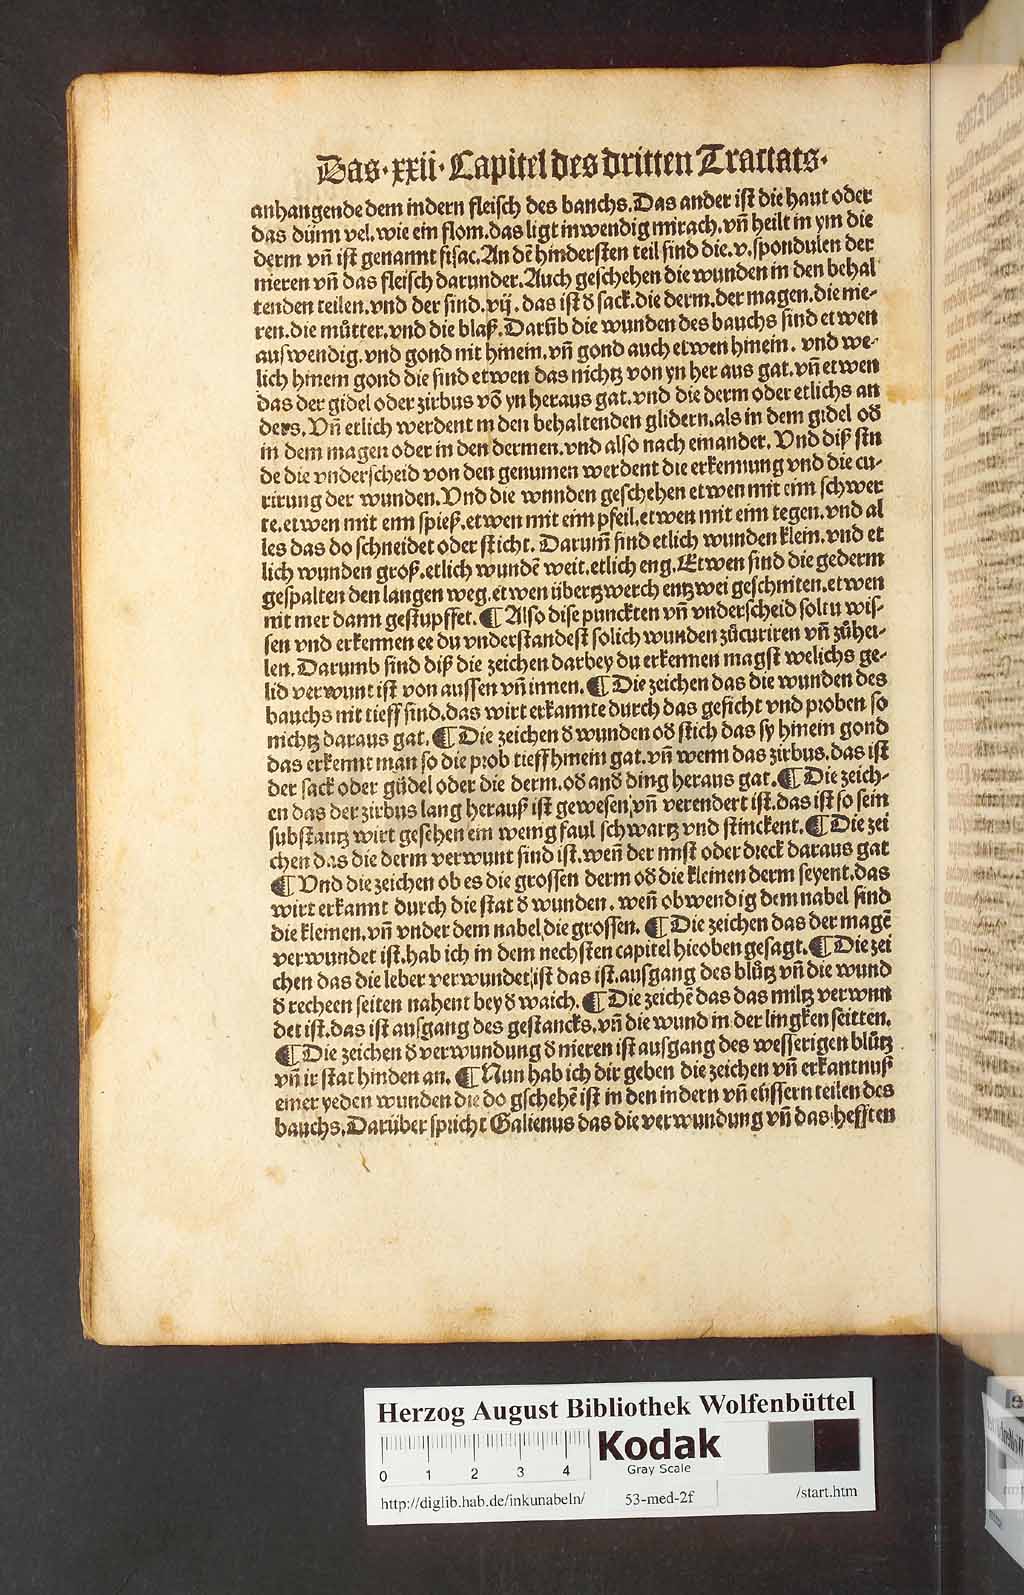 Das·xxii·Capitel des dritten Tractats·
anhangende dem indern fleisch des bauchs. Das ander ist die haut oder
das dünn vel. wie ein flom. das ligt inwendig mirach. vn̄ heilt in ym die
derm vn̄ ist genannt sisac. An dē hindersten teil sind die .v. spondulen der
nieren vn̄ das fleisch darunder. Auch geschehen die wunden in den behal
tenden teilen. vnd der sind .vij. das ist d̕ sack. die derm. der magen. die nie-
ren. die můtter. vnd die blaß. Darūb die wunden des bauchs sind etwen
auswendig. vnd gond nit hinein. vn̄ gond auch etwen hinein. vnd we-
lich hinein gond die sind etwen das nichtz von yn her aus gat. vn̄ etwen
das der gidel oder zirbus vō yn heraus gat. vnd die derm oder etlichs an
ders. Vn̄ etlich werdent in den behaltenden glidern. als in dem gidel od̕
in dem magen oder in den dermen. vnd also nach einander. Vnd diß sin
de die vnderscheid von den genumen werdent die erkennung vnd die cu-
rirung der wunden. Vnd die wunden geschehen etwen mit eim schwer
te. etwen mit eim spieß. etwen mit eim pfeil. etwen mit eim tegen. vnd al
les das do schneidet oder sticht. Darum̄ sind etlich wunden klein. vnd et
lich wunden groß. etlich wundē weit. etlich eng. Etwen sind die gederm
gespalten den langen weg. etwen übertzwerch entzwei geschniten. etwen
nit mer dann gestupffet. ¶ Also dise punckten vn̄ vnderscheid soltu wis-
sen vnd erkennen ee du vnderstandest solich wunden zůcuriren vn̄ zůhei-
len. Darumb sind diß die zeichen darbey du erkennen magst welichs ge-
lid verwunt ist von aussen vn̄ innen. ¶ Die zeichen das die wunden des
bauchs nit tieff sind. das wirt erkannte durch das gesicht vnd proben so
nichtz daraus gat. ¶ Die zeichen d̕ wunden od̕ stich das sy hinein gond
das erkennt man so die prob tieff hinein gat. vn̄ wenn das zirbus. das ist
der sack oder güdel oder die derm. od̕ and̕ ding heraus gat. ¶ Die zeich-
en das der zirbus lang herauß ist gewesen vn̄ verendert ist. das ist so sein
substantz wirt gesehen ein wenig faul schwartz vnd stinckent. ¶ Die zei
chen das die derm verwunt sind ist. wen̄ der mist oder dreck daraus gat
¶ Vnd die zeichen ob es die grossen derm od̕ die kleinen derm seyent. das
wirt erkannt durch die stat d̕ wunden. wen̄ obwendig dem nabel sind
die kleinen. vn̄ vnder dem nabel die grossen. ¶ Die zeichen das der magē
verwundet ist. hab ich in dem nechsten capitel hieoben gesagt. ¶ Die zei
chen das die leber verwundet ist das ist. ausgang des blůtz vn̄ die wund
d̕ recheen seiten nahent bey d̕ waich. ¶ Die zeichē das das miltz verwun
det ist. das ist ausgang des gestancks. vn̄ die wund in der lingken seitten.
¶ Die zeichen d̕ verwundung d̕ nieren ist ausgang des wesserigen blůtz
vn̄ ir stat hinden an. ¶ Nun hab ich dir geben die zeichen vn̄ erkantnuß
einer yeden wunden die do gschehē ist in den indern vn̄ eüssern teilen des
bauchs. Darüber spricht Galienus das die verwundung vn̄ das hefften
Herzog August Bibliothek Wolfenbüttel
0 1 2 3 4
Kodak
Gray Scale
http://diglib.hab.de/inkunabeln/ 53-med-2f /start.htm